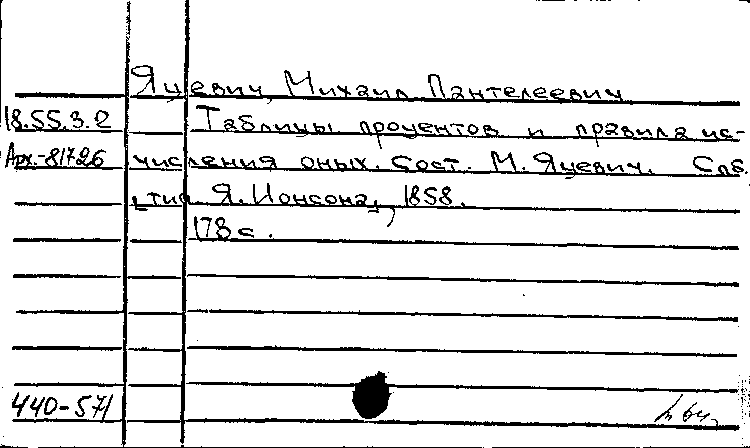 Яцевич, Михаил Пантелеевич
18.55.3.2 Таблицы процентов и правила ис-
Арх.-81726 числения оных. Сост. М. Яцевич. Спб.
тип Я. Ионсона, 1858.
178 с.
440-571